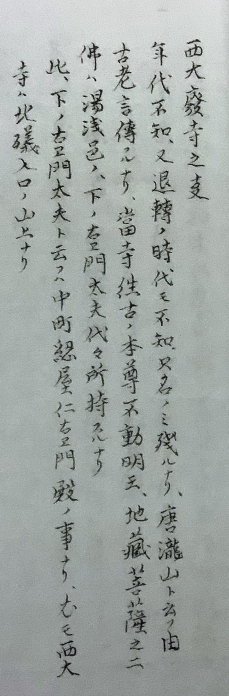 西大廢寺之支
年代不知、又退轉ノ時代モ不知只名ノミ殘ルナリ、唐瀧山ト云フ由
古老言傳ルナリ、當寺往古ノ本尊不動明王、地藏菩薩之二
佛ハ湯浅邑ノ、下ノ右卫門太夫代々所持スルナリ
此、下ノ右卫門太夫ト云フハ中町総屋仁右卫門殿ノ事ナリ、尤モ西大
寺ハ北礒入口ノ山上ナリ